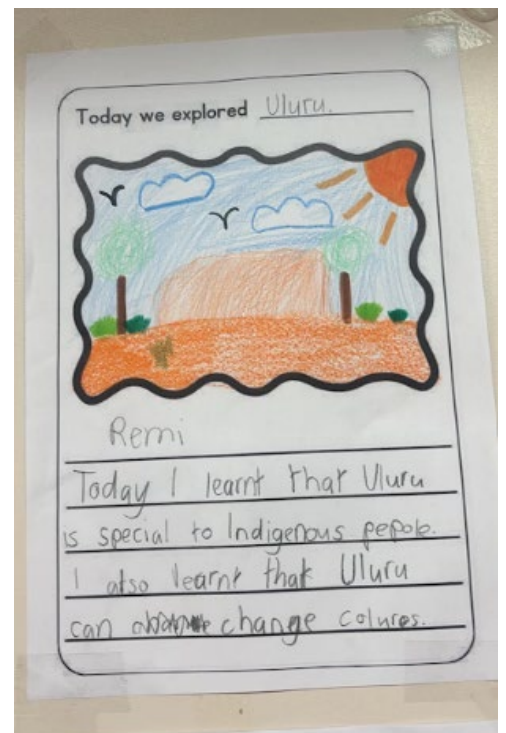 Today we explored Uluru.
Remi
Today I learnt that Uluru
is special to Indigenous pepole.
I also learnt that Uluru
can change colures.